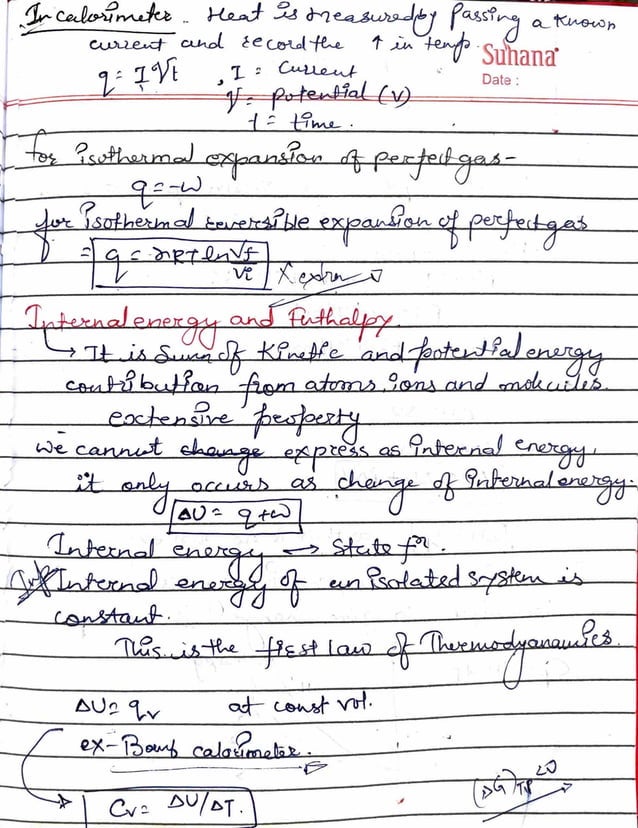 In calorimeter - Heat is measured by Passing a known
current and record the ↑ in temp.
Suhana
Date :
q = IVt , I = Current
V = Potential (V)
t = time.
for isothermal expansion of perfect gas -
q = -w
for isothermal reversible expansion of perfect gas
= q = nRT ln Vf/Vi X extra
Internal energy and Enthalpy.
→ It is Sum of Kinetic and potential energy
contribution from atoms, ions and molecules.
extensive property
we cannot change express as internal energy,
it only occurs as change of internal energy.
ΔU = q+w
Internal energy → State fn.
Imp Internal energy of an isolated system is
constant.
This is the first law of Thermodyanamics.
ΔU = qv at const vol.
ex - Bomb calorimeter.
Cv = ΔU/ΔT.